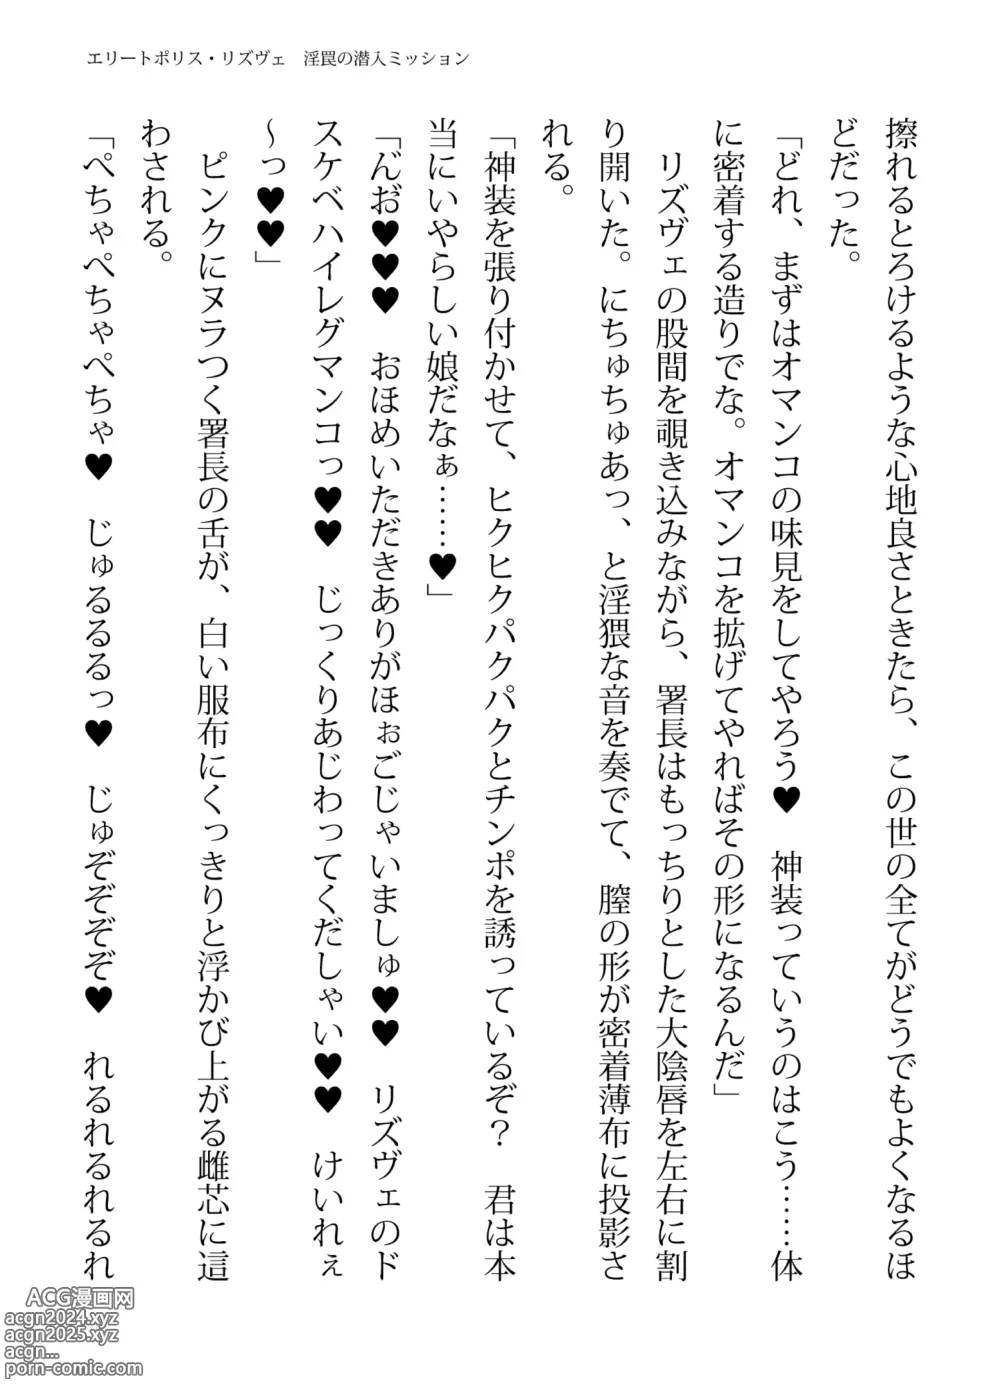 エリートポリス・リズヴェ　淫罠の潜入ミッション
擦れるとろけるような心地良さときたら、この世の全てがどうでもよくなるほ
どだった。
「どれ、まずはオマンコの味見をしてやろう♥　神装っていうのはこう……体
に密着する造りでな。オマンコを拡げてやればその形になるんだ」
　リズヴェの股間を覗き込みながら、署長はもっちりとした大陰唇を左右に割
り開いた。にちゅちゅあっ、と淫猥な音を奏でて、膣の形が密着薄布に投影さ
れる。
「神装を張り付かせて、ヒクヒクパクパクとチンポを誘っているぞ？　君は本
当にいやらしい娘だなぁ……♥」
「ん゛お゛♥♥♥　おほめいただきありがほぉごじゃいましゅ♥♥　リズヴェのド
スケベハイレグマンコっ♥♥　じっくりあじわってくだしゃい♥♥　けいれぇ
～っ♥♥」
　ピンクにヌラつく署長の舌が、白い服布にくっきりと浮かび上がる雌芯に這
わされる。
「ぺちゃぺちゃぺちゃ♥　じゅるるるっ♥　じゅぞぞぞぞ♥　れるれるれるれ
ACG漫画网
acgn2024.xyz
acgn2025.xyz
acgn...
porn-comic.com